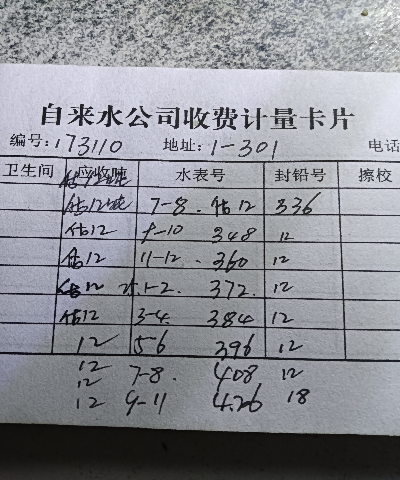 自来水公司收费计量卡片
编号:173110 地址:1-301 电话
卫生间 应收吨 水表号 封铅号 擦校
估12吨 7-8. 估12 336
估12 9-10 348 12
估12 11-12 360 12
估12 1-2 372. 12
估12 3-4 384 12
12 5-6 396 12
12 7-8. 408 12
12
12 9-11 426 18